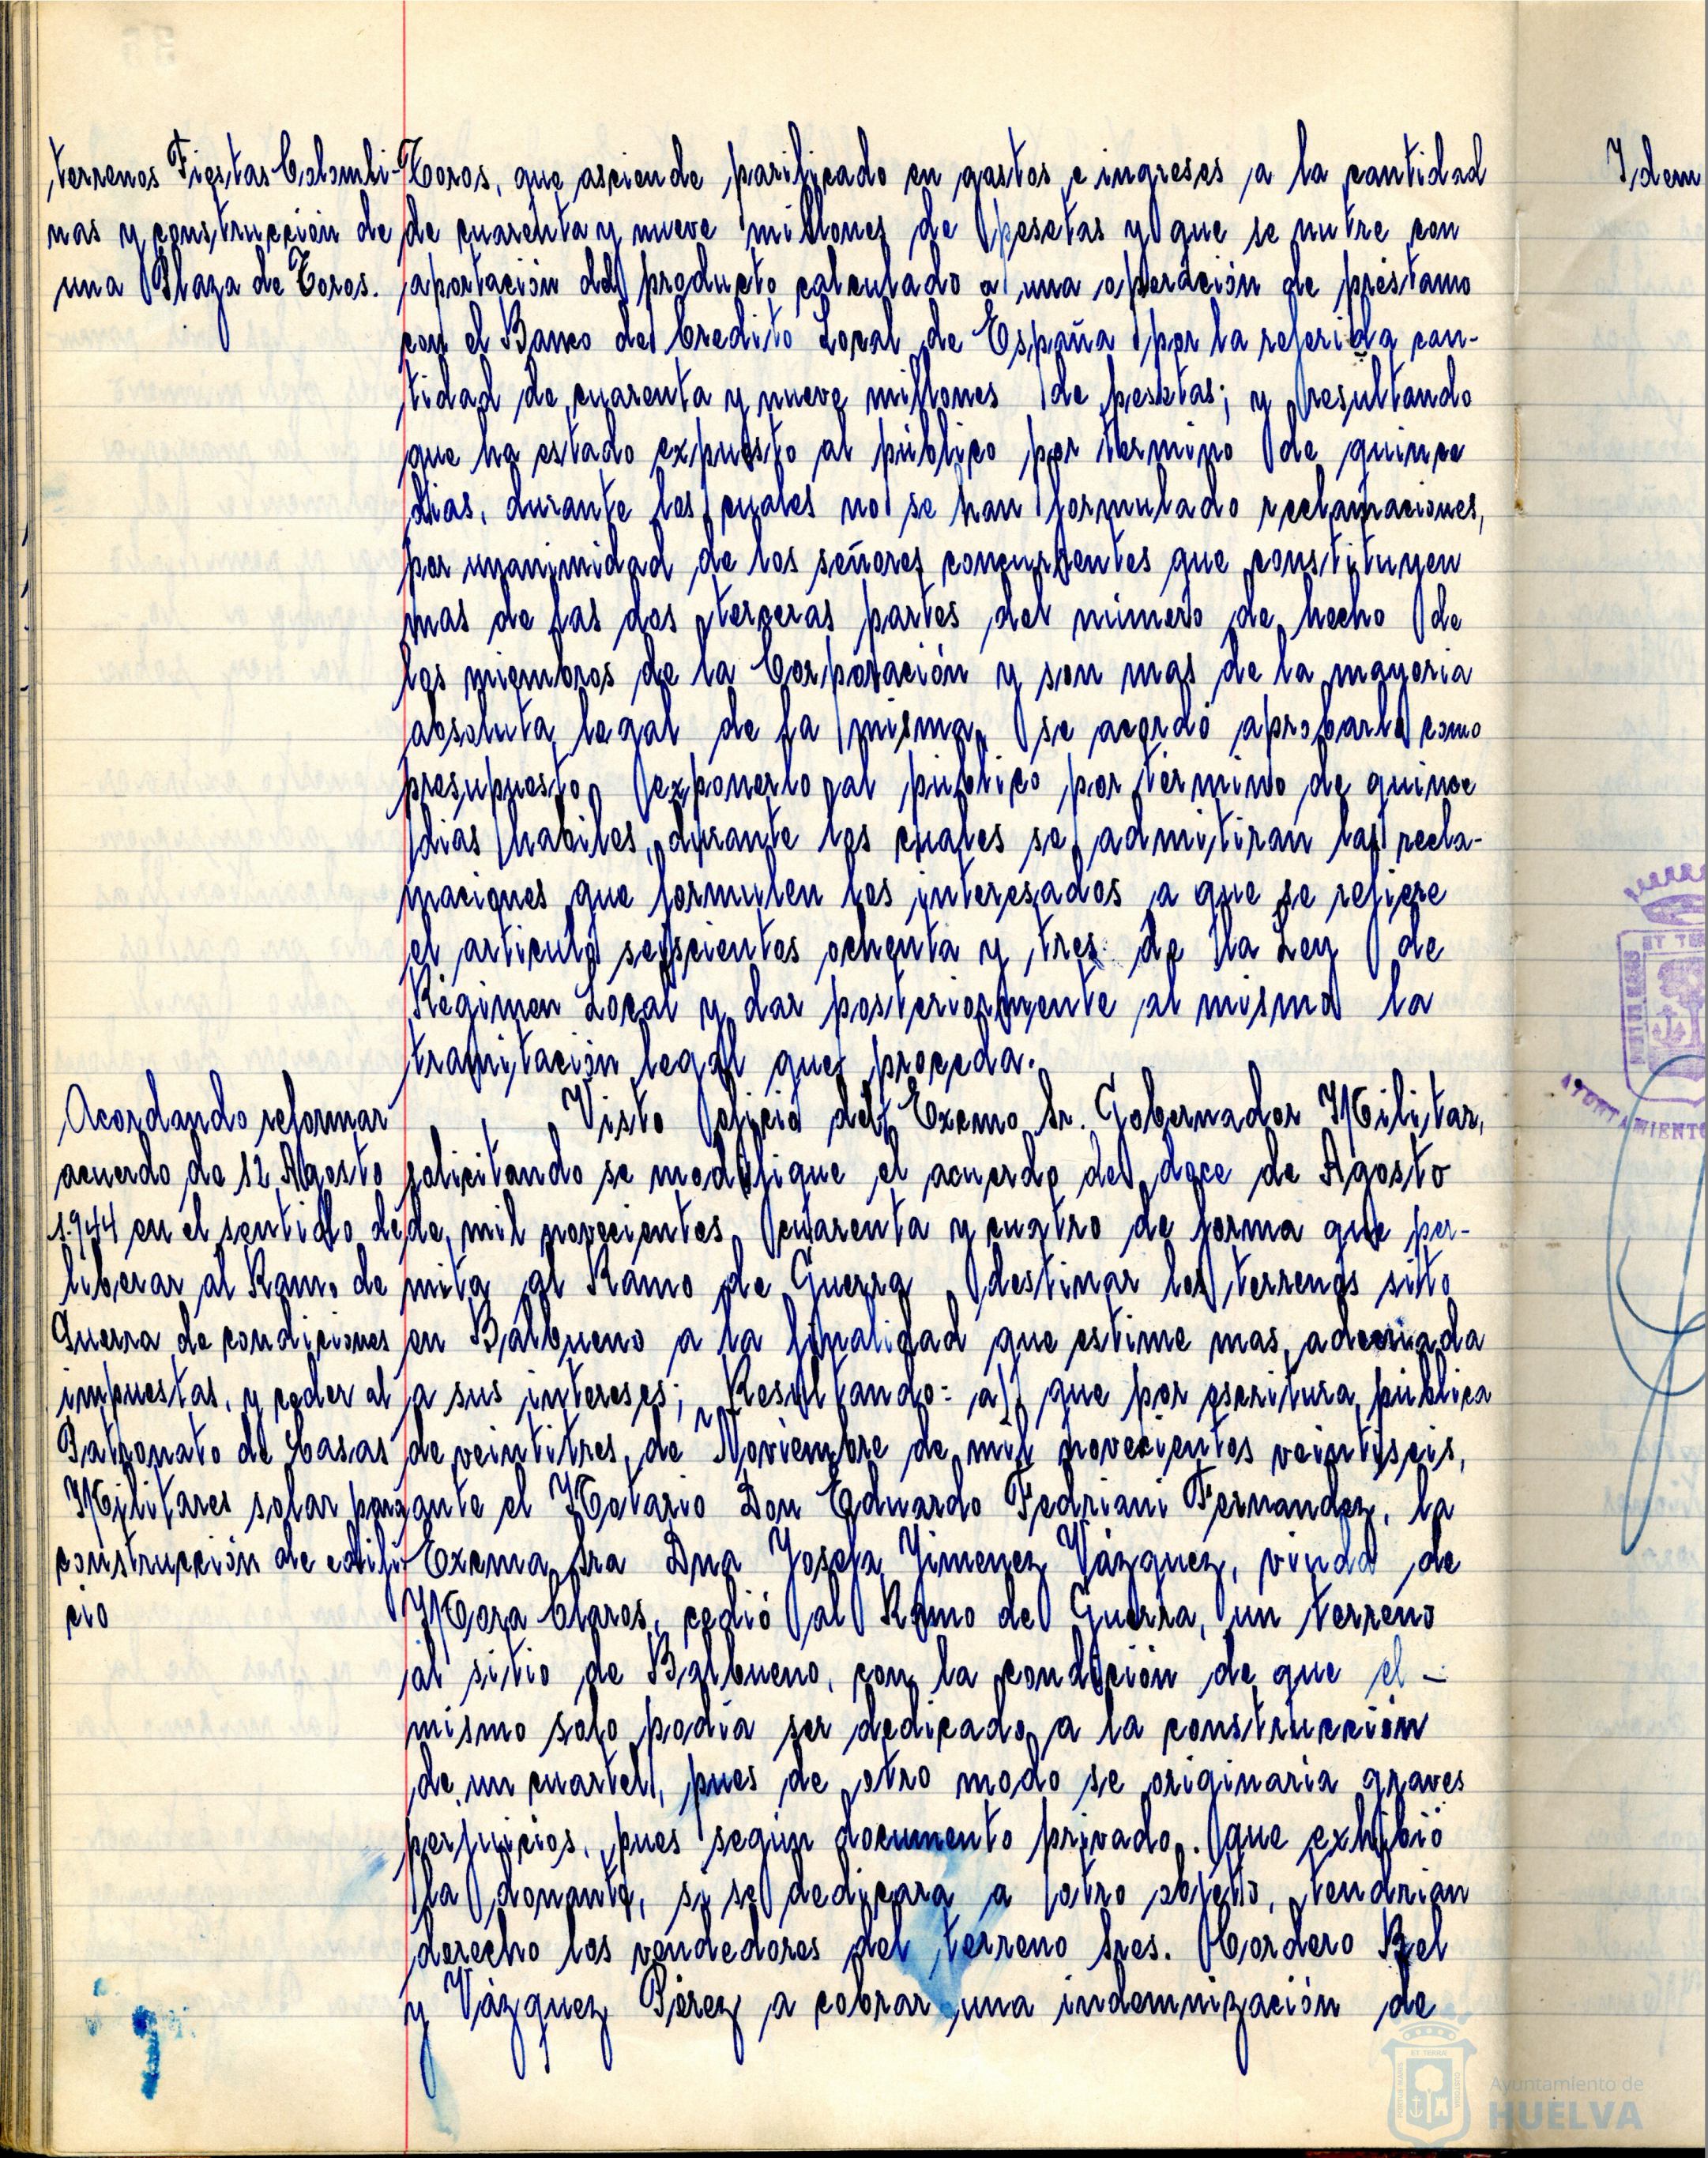 terrenos Fiestas Colombi-
nas y construcción de
una Plaza de Toros.
Toros, que asciende parificado en gastos e ingresos a la cantidad
de cuarenta y nueve millones de pesetas y que se nutre con
aportación del producto calculado a una operación de préstamo
con el Banco de Credito Local de España por la referida can-
tidad de cuarenta y nueve millones de pesetas; y resultando
que ha estado expuesto al público por termino de quince
dias, durante los cuales no se han formulado reclamaciones,
por unanimidad de los señores concurrentes que constituyen
mas de las dos terceras partes del número de hecho de
los miembros de la Corporación y son mas de la mayoria
absoluta legal de la misma, se acordó aprobarlo como
presupuesto, exponerlo al público por término de quince
dias habiles, durante los cuales se admitiran las recla-
maciones que formulen los interesados a que se refiere
el articulo seiscientos ochenta y tres de la Ley de
Régimen Local y dar posteriormente al mismo la
tramitación legal que proceda.
Acordando reformar
acuerdo de 12 Agosto
1.944 en el sentido de
liberar al Ramo de
Guerra de condiciones
impuestas, y ceder al
Patronato de Casas
Militares solar para
construcción de edifi-
cio
Visto oficio del Excmo Sr. Gobernador Militar,
solicitando se modifique el acuerdo del doce de Agosto
de mil novecientos cuarenta y cuatro de forma que per-
mita al Ramo de Guerra destinar los terrenos sito
en Balbueno a la finalidad que estime mas adecuada
a sus intereses; Resultando: a) que por escritura pública
de veintitres de Noviembre de mil novecientos veintiseis,
ante el Notario Don Eduardo Fedriani Fernandez, la
Excma Sra Dña Josefa Jimenez Vázquez, viuda de
Mora Claros, cedió al Ramo de Guerra, un terreno
al sitio de Balbueno, con la condición de que el -
mismo solo podia ser dedicado a la construcción
de un cuartel, pues de otro modo se originaria graves
perjuicios, pues según documento privado, que exhibió
la donante, si se dedicara a otro objeto, tendrian
derecho los vendedores del terreno Sres. Cordero Bel
y Vázquez Pérez a cobrar una indemnización de
Idem
AYUNTAMIENTO
Ayuntamiento de
HUELVA